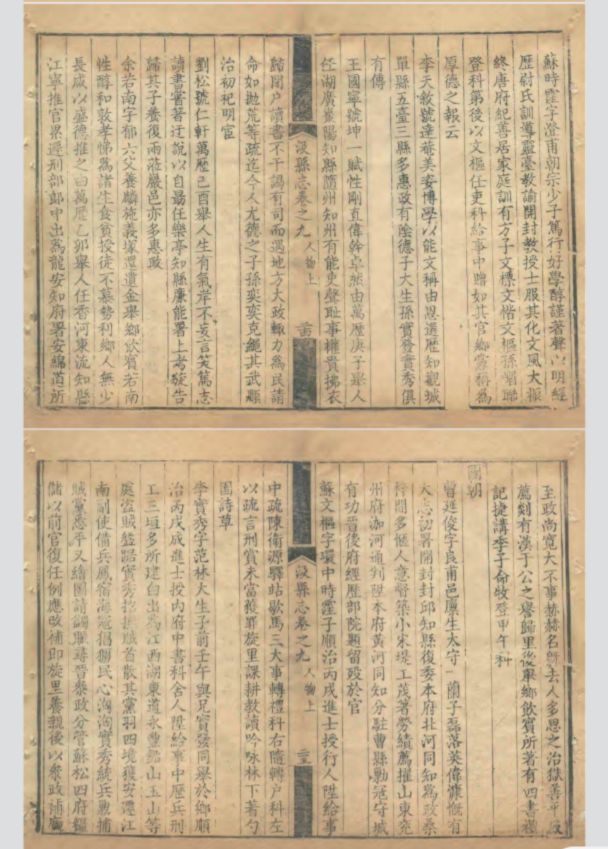 蘇時霖字澄甫朝宗少子篤行好學醇謹著聲以明經
歷尉氏訓導靈臺教諭開封教授士服其化文風大振
終唐府紀善居家庭訓有方子文標文楷文樞孫 聯
登科第後以文樞任吏科給事中贈如其官鄉黨稱爲
厚德之報云
李天敘號蓮菴美安博學以能文稱由恩選歷知觀城
單縣五臺三縣多惠政有陰德子大生孫實發實秀俱
有傳
王國寧號坤一賦性剛直偉幹卓然由萬歷庚子舉人
任湖廣棗陽知縣隨州知州有能吏聲恥事權貴拂衣
汶縣志卷之九 人物上
歸閉户讀書不干謁有司而遇地方大政輙力爲民請
命如拋荒等疏迄今人尤德之子孫奕奕克繩其武順
治初祀明宦
劉松號仁軒萬歷己酉舉人生有氣岸不妄言笑篤志
讀書嘗著迂說以自勗任樂亭知縣廉能署上考旋告
歸其子養復雨蒞嚴邑亦多惠政
余若南字郁六父養麟施義塚還遺金舉鄉飲賓若南
性醇和敦孝悌爲諸生食貧授徒不慕勢利鄉人無少
長咸以盛德推之由萬歷乙卯舉人任香河東流知縣
江寧推官累遷刑部郎中出爲龍安知府署安綿道所
至政尚寬大不事赫赫名歸去人多思之治獄善平反
薦剡有漢于公之譽歸里後舉鄉飲賓所著有四書
記捷講李子命牧登甲午科
國朝
曾延俊字良甫邑廩生太守一蘭子磊落英偉慷慨有
大志初署開封封邱知縣復委本府北河同知爲政
州府泇河通判陞本府黃河同知分駐曹縣勦寇守城
有功晉後府經歷部院題留歿於官
蘇文樞字環中時霖子順治丙戌進士授行人陞給事
汶縣志卷之九 人物上
中疏陳衛源驛站歇馬三大事轉禮科右隨轉户科左
以疏言刑賞未當獲罪旋里課耕教讀吟咏林下著勺
園詩草
李實秀字范林大生子前壬午與兄實發同舉於鄉順
治丙戌成進士授内府中書科舍人陞給事中歷兵刑
工三垣多所建白出爲江西湖東道永豐鉛山玉山等
處盜賊 實秀招撫賊首散其黨羽四境獲安遷江
南副使備兵鳳宿海寇猖獗民心洶洶實秀統兵勦捕
賊黨悉平又繪圖請蠲賑尋晉叅政分管蘇松四府糧
儲以前官復任例應改補即旋里養親後以叅政補